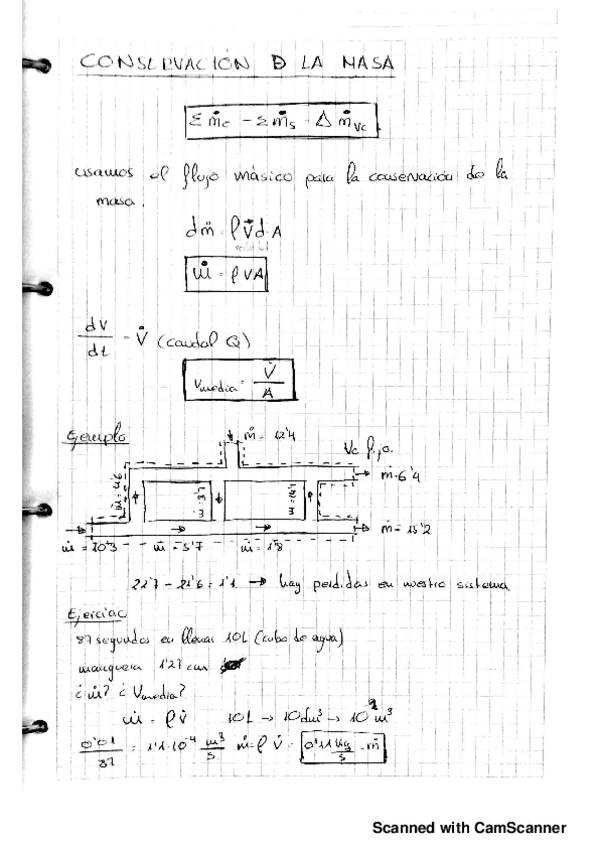 CONSERVACIÓN D LA MASA
Σṁe - Σṁs = Δṁvc
usamos el flujo másico para la conservación de la
masa.
dṁ = ρV⃗dA
ṁ = ρVA
dV/dt = V̇ (caudal Q)
Vmedia = V̇/A
Ejemplo
ṁ = 12'4
Vc fijo.
ṁ = 4'6
ṁ = 6'4
ṁ = 10'3
ṁ = 5'7
ṁ = 1'8
ṁ = 15'2
22'7 - 21'6 = 1'1 → hay perdidas en nuestro sistema
Ejercicio
87 segundos en llenar 10L (cubo de agua)
manguera 1'27 cm
¿ṁ? ¿Vmedia?
ṁ = ρV̇ 10L → 10dm³ → 10⁻² m³
0'01/87 = 1'1·10⁻⁴ m³/s ṁ = ρ V̇ = 0'11 kg/s = ṁ
Scanned with CamScanner